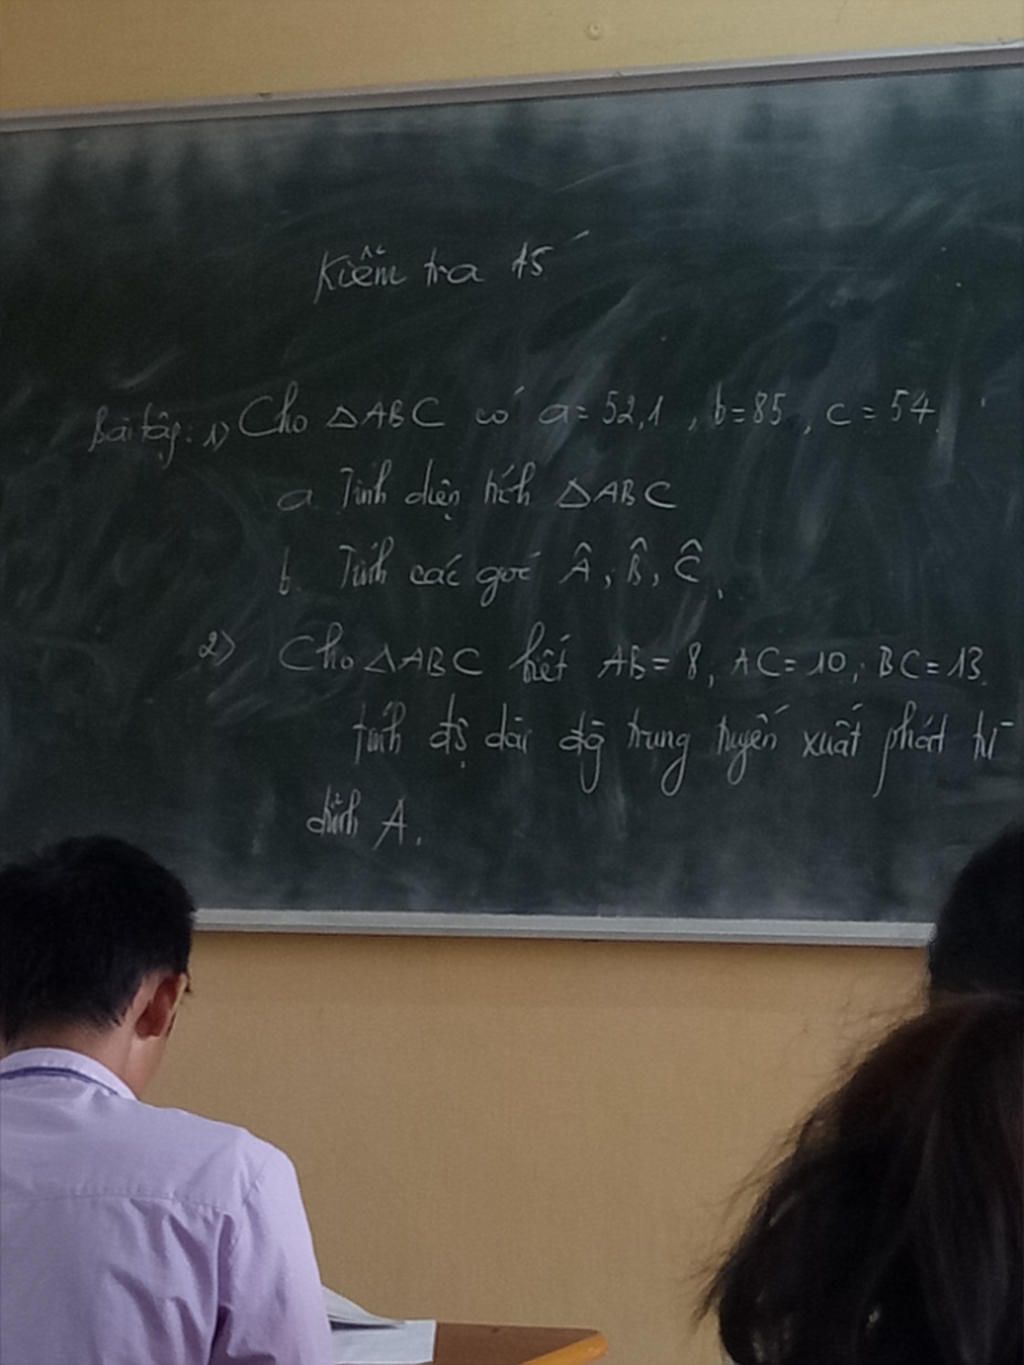 Kiểm tra 15'
Bài tập: 1) Cho △ABC có a = 52,1 , b = 85 , c = 54.
a Tính diện tích △ABC
b. Tính các góc Â, B̂, Ĉ.
2) Cho △ABC biết AB = 8, AC = 10; BC = 13.
tính độ dài đg trung tuyến xuất phát từ
đỉnh A.